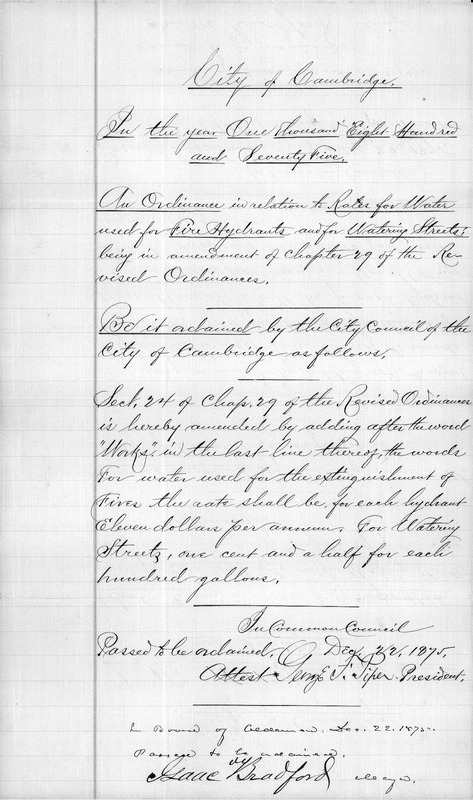 City of Cambridge.
In the year One Thousand Eight Hundred
and Seventy Five.
An Ordinance in relation to Rates for Water
used for Fire Hydrants and for Watering Streets;
being in amendment of chapter 29 of the Re-
vised Ordinances.
Be it ordained by the City Council of the
City of Cambridge as follows.
Sect. 24 of Chap. 29 of the Revised Ordinances
is hereby amended by adding after the word
"Works", in the last line thereof, the words
For water used for the extinguishment of
Fires the rate shall be, for each hydrant
Eleven dollars per annum. For Watering
Streets, one cent and a half for each
hundred gallons.
In Common Council
Passed to be ordained. Dec. 22, 1875.
Attest George F. Piper President.
In Board of Aldermen. Dec. 22. 1875.
Passed to be ordained.
Isaac Bradford Mayor.